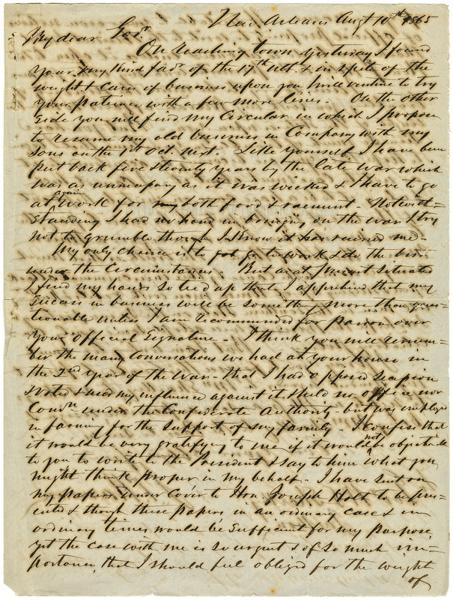 New Orleans Augt 10th 1865
My dear Govr
On reaching town yesterday I found
your very kind favr of the 17th ult. & in spite of the
weight & care of business upon you I will venture to try
your patience with a few more lines. On the other
side you will find my Circular in which I propose
to resume my old business in Company with my
Sons on the 1st Oct. next. I have been
put back five & twenty years by the late war which
was as unnecessary as it was wicked & I have to go
at work again for my both food & raiment. Notwith-
standing I had no hand in bringing on the war I try
not to grumble though I know it has ruined me.
My only chance is to go to work & do the best
under the circumstances. But as at present situated
I find my hands so tied up that I apprehend that my
success in business will be something more than ques-
tionable unless I am recommended for pardon over
your official Signature. I think you will remem-
ber the many conversations we had at your house in
the 2nd year of the war that I had opposed secession
& voted & used my influence against it. Held no office nor
Comn under the Confederate Authority but was employed
in farming for the support of my family. I confess that
it would be very gratifying to me if it would not be objectionable
to you to write to the President & say to him what you
might think proper in my behalf. I have sent on
my papers under cover to Hon. Joseph Holt to be pre-
sented & though these papers in an ordinary case & in
ordinary times would be sufficient for my purpose,
yet the case with me is so urgent & of so much im-
portance, that I should feel obliged for the weight
of